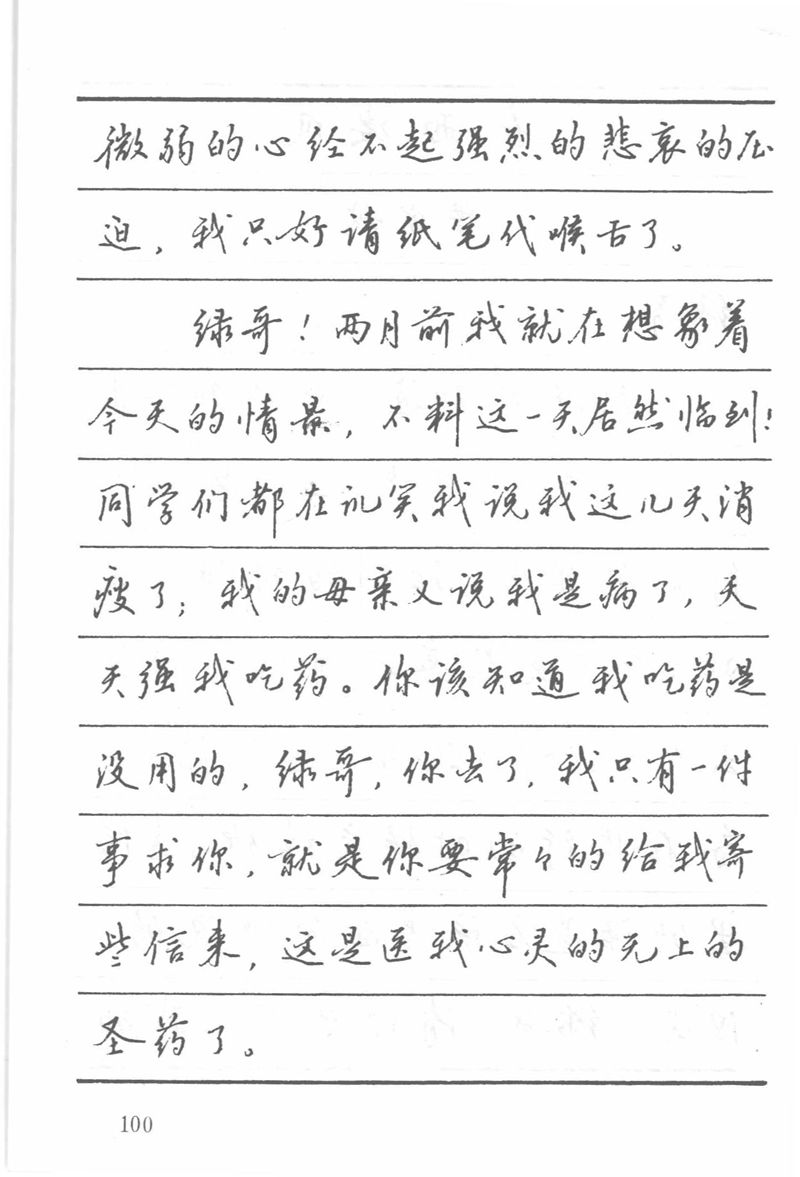 微弱的心经不起强烈的悲哀的压
迫，我只好请纸笔代喉舌了。
绿哥！两月前我就在想象着
今天的情景，不料这一天居然临到！
同学们都在讥笑我说我这几天消
瘦了；我的母亲又说我是病了，天
天强我吃药。你该知道我吃药是
没用的，绿哥，你去了，我只有一件
事求你，就是你要常々的给我寄
些信来，这是医我心灵的无上的
圣药了。
100